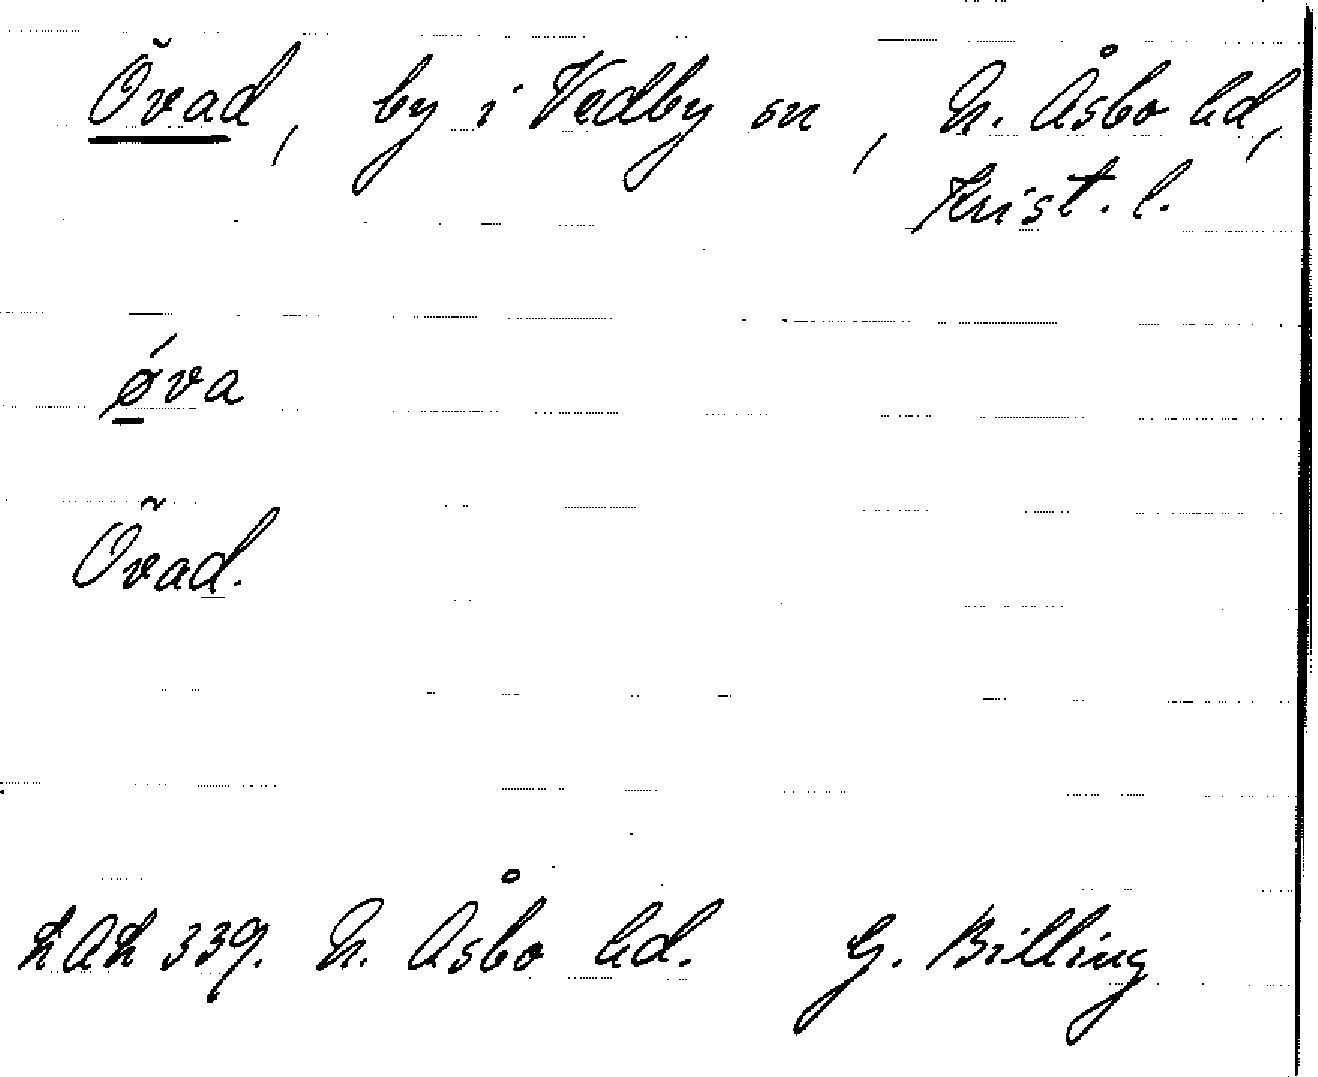 Övad, by i Vedby sn, N. Åsbo hd,
Krist. l.
ǿva
Övad.
LAL 339. N. Åsbo hd. G. Billing